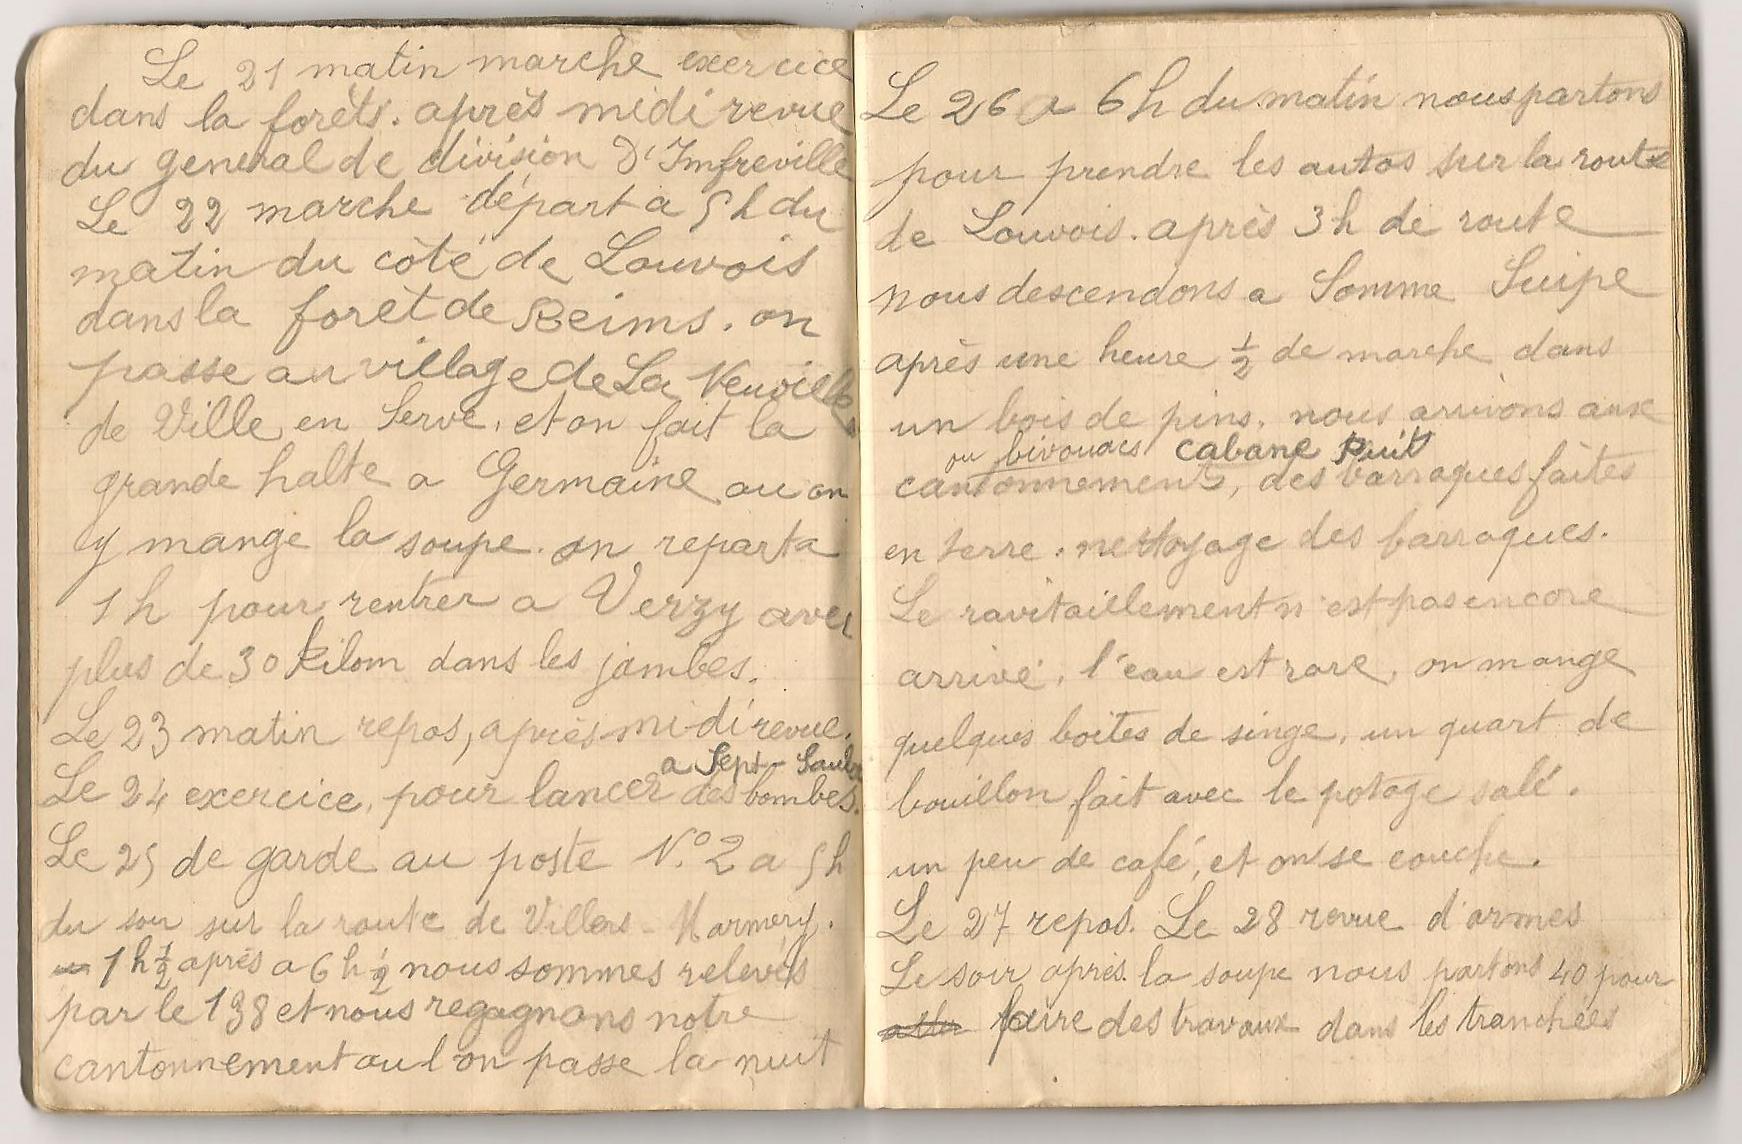 Le 21 matin marche exercice
dans la forêts. après midi revue
du general de division D'Imfreville
Le 22 marche départ a 5 h du
matin du côté de Louvois
dans la forêt de Reims. on
passe au village de La Neuville
de Ville en Serve. et on fait la
grande halte a Germaine ou on
y mange la soupe. on repart a
1 h pour rentrer a Verzy avec
plus de 30 kilom dans les jambes.
Le 23 matin repos, après midi revue.
a Sept-Saulx
Le 24 exercice, pour lancer des bombes.
Le 25 de garde au poste N.º 2 a 5 h
du soir sur la route de Villers-Marmery.
1 h ½ après a 6 h ½ nous sommes relevés
par le 138 et nous regagnons notre
cantonnement ou l'on passe la nuit
Le 26 a 6 h du matin nous partons
pour prendre les autos sur la route
de Louvois. après 3 h de route
nous descendons a Somme Suipe
après une heure ½ de marche dans
un bois de pins. nous arrivons aux
ou bivouacs cabane Puit
cantonnements, des barraques faites
en terre. nettoyage des barraques.
Le ravitaillement n'est pas encore
arrivé, l'eau est rare, on mange
quelques boites de singe, un quart de
bouillon fait avec le potage salé.
un peu de café, et on se couche.
Le 27 repos. Le 28 revue d'armes
Le soir après la soupe nous partons 40 pour
faire des travaux dans les tranchées